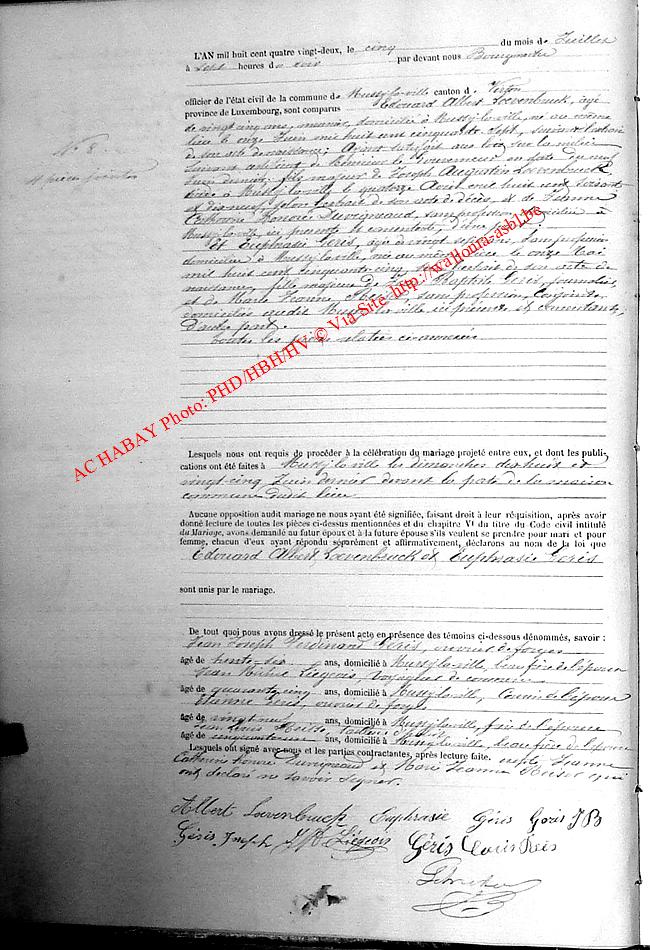 L'AN mil huit cent quatre vingt-deux, le cinq du mois de Juillet
à Sept heures du soir par devant nous Bourgmestre
officier de l'état civil de la commune de Mussy-la-ville canton de Virton
province de Luxembourg, sont comparus Edouard Albert Loevenbruck, âgé
de vingt cinq ans, domicilié à Mussy-la-ville, né au même
lieu le onze Juin mil huit cent cinquante sept, suivant l'extrait
N° 8
de son acte de naissance; Ayant satisfait aux lois sur la milice
suivant certificat de Monsieur le Gouverneur en date du
Juin dernier; fils majeur de Joseph Augustin Loevenbruck
décédé à Mussy-la-ville le quatorze Août mil huit cent soixante
et dix neuf, selon l'extrait de son acte de décès, et de Jeanne
Catherine Honorée sans profession, domiciliée à
Mussy-la-ville, ici présente et consentante, d'une part;
Et Euphrasie Géris, âgée de vingt sept ans, sans profession
domiciliée à Mussy-la-ville, née au même lieu le onze
mil huit cent cinquante cinq, selon l'extrait de son acte de
naissance, fille majeure de Jean Baptiste Géris, journalier,
et de Marie Jeanne sans profession, conjoints
domiciliés audit Mussy-la-ville ici présents et consentants,
d'autre part.
Toutes les pièces relatées ci-annexées
AC HABAY Photo: PHD/HBH/HV/ © Via Site http://wallonia-asbl.be
Lesquels nous ont requis de procéder à la célébration du mariage projeté entre eux, et dont les publi-
cations ont été faites à Mussy-la-ville les dimanches dix huit et
vingt-cinq Juin dernier devant la porte de la maison
commune dudit lieu
Aucune opposition audit mariage ne nous ayant été signifiée, faisant droit à leur réquisition, après avoir
donné lecture de toutes les pièces ci-dessus mentionnées et du chapitre VI du titre du Code civil intitulé
du Mariage, avons demandé au futur époux et à la future épouse s'ils veulent se prendre pour mari et pour
femme, chacun d'eux ayant répondu séparément et affirmativement, déclarons au nom de la loi que
Edouard Albert Loevenbruck et Euphrasie Géris
sont unis par le mariage.
De tout quoi nous avons dressé le présent acte en présence des témoins ci-dessous dénommés, savoir :
Jean Joseph Ferdinand Géris, ouvrier de forges
âgé de trente-six ans, domicilié à Mussy-la-ville, frère de l'épouse
Jean Liégeois, voyageur de commerce
âgé de quarante cinq ans, domicilié à Mussy-la-ville, Cousin de l'épouse
Géris, ouvrier de forges
âgé de vingt neuf ans, domicilié à Mussy-la-ville, frère de l'épouse
Jean Louis
âgé de ans, domicilié à Mussy-la-ville, beau frère de l'épouse
Lesquels ont signé avec nous et les parties contractantes, après lecture faite. Jeanne
Catherine Honorée et Marie Jeanne qui
ont déclaré ne savoir signer.
Albert Loevenbruck Euphrasie Géris Géris JB
Géris Joseph Liégeois Géris Louis